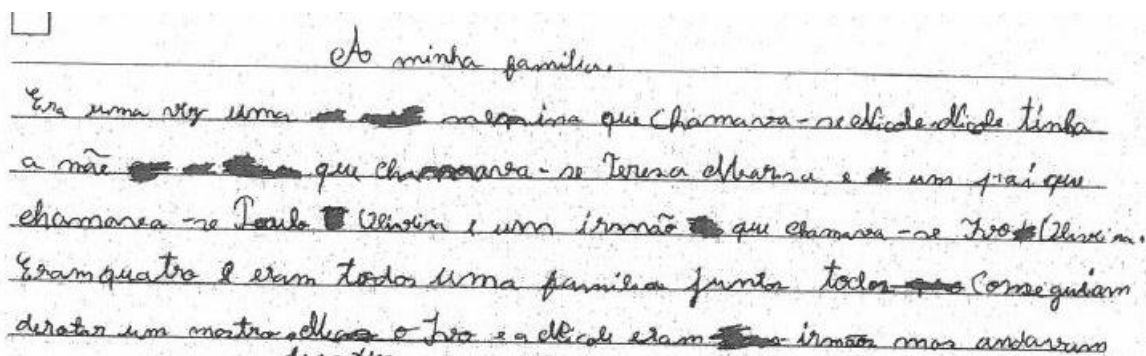 A minha familia.
Era uma vez uma menina que chamava-se Nicole Nicole tinha
a mãe que chamava-se Teresa e um pai que
chamava-se Paulo Oliveira e um irmão que chamava-se Ivo Oliveira.
Eram quatro e eram todos uma familia juntos todos Conseguiam
derotar um mostro o Ivo e a Nicole eram irmãos mas andavam